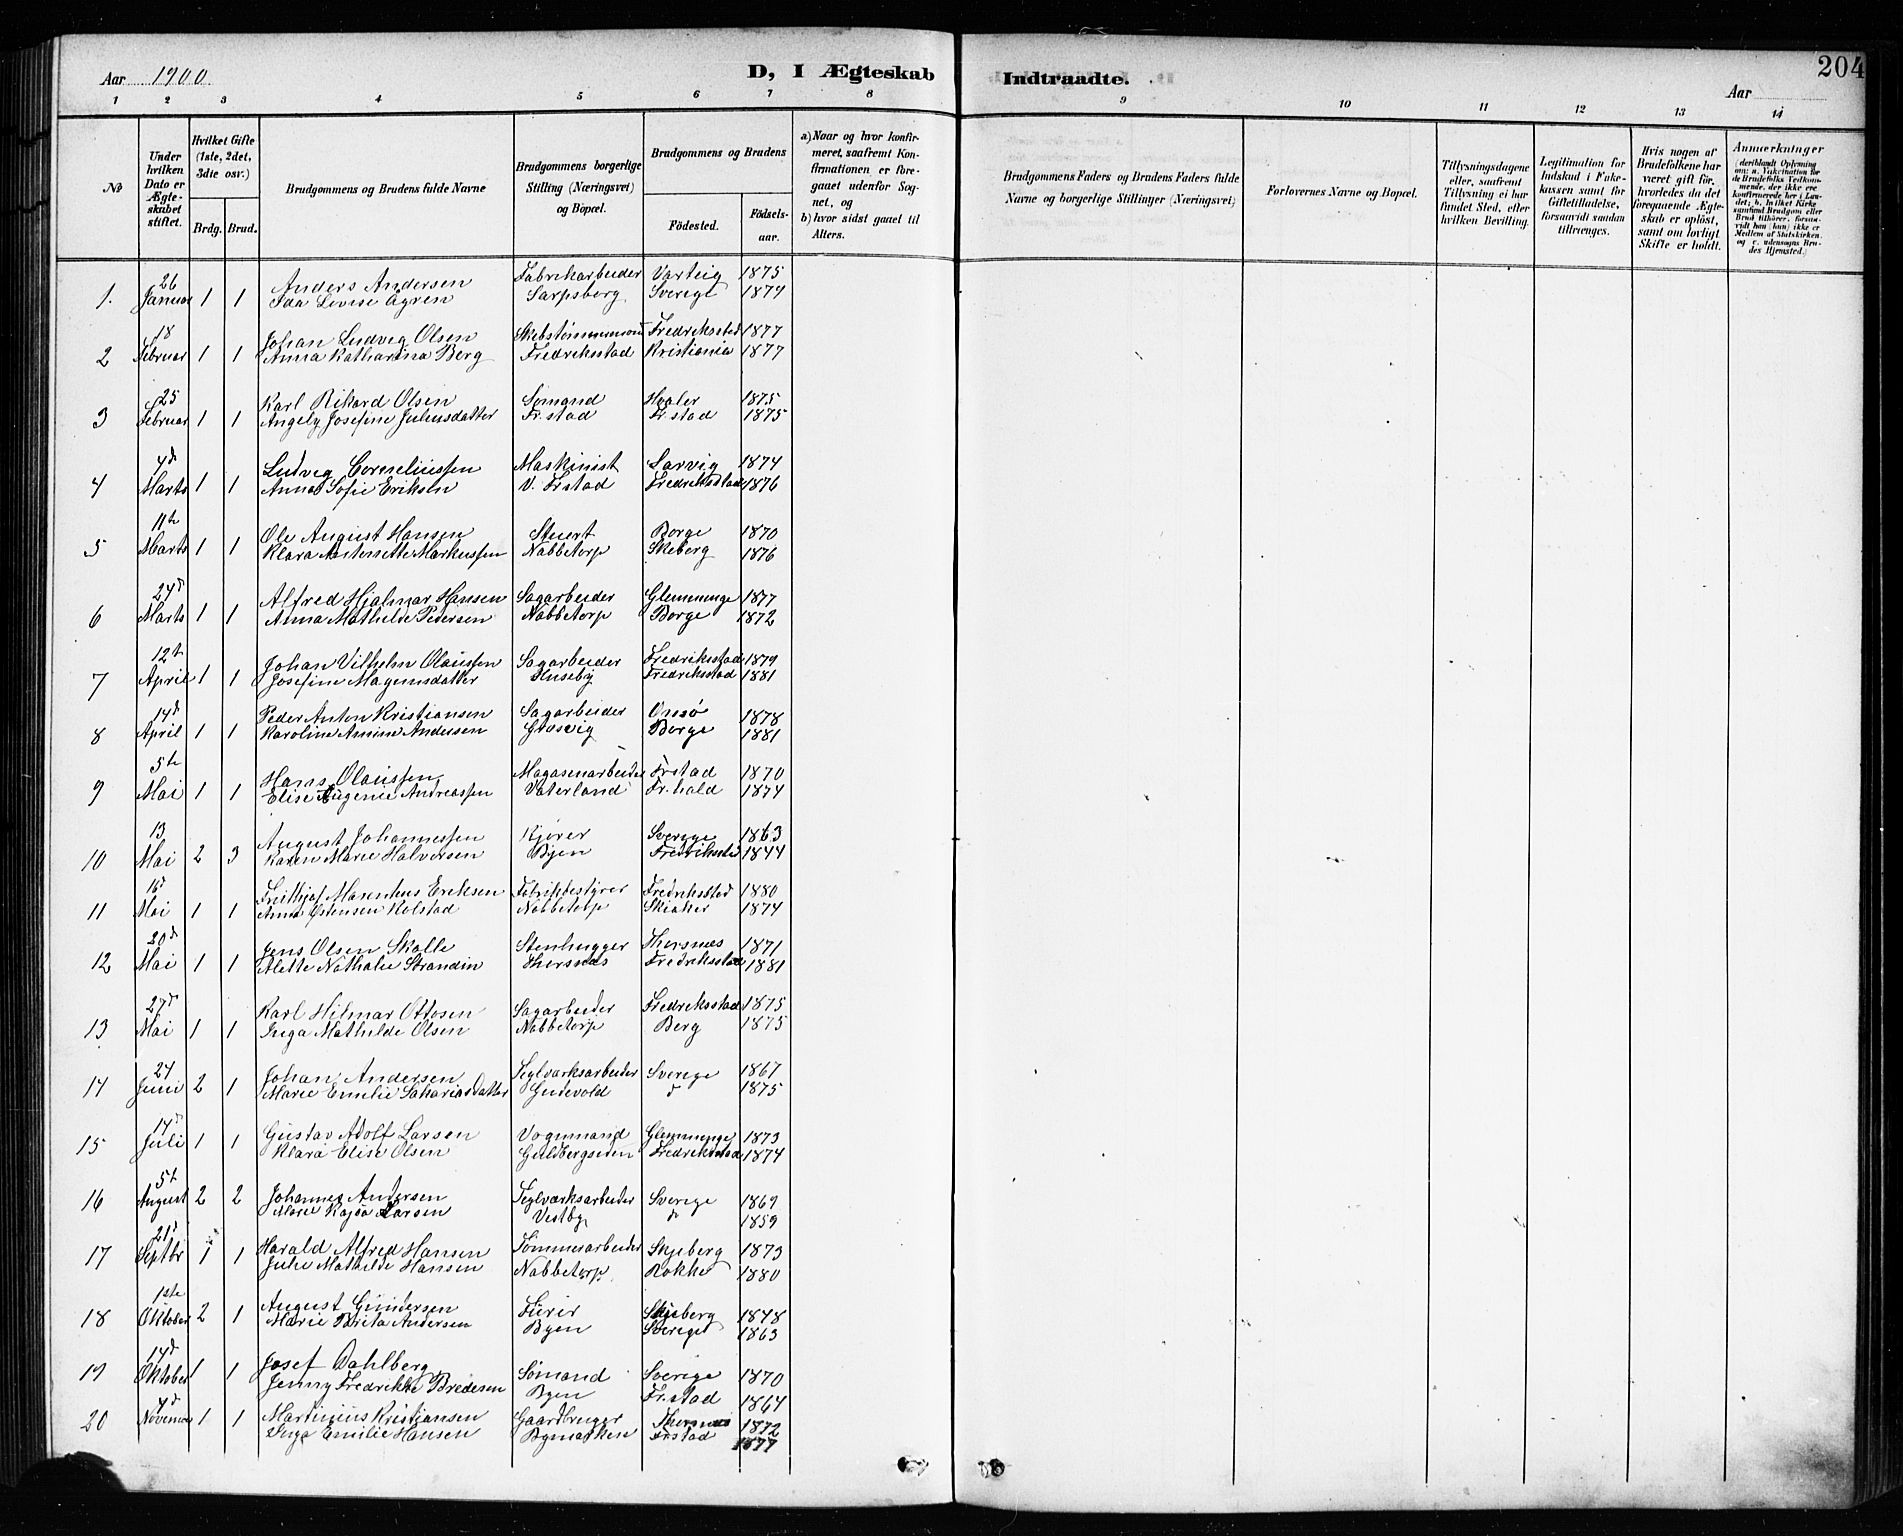 Aar 1900.
D, I Ægteskab
Indtraadte.
Aar
204
1 2 3 4 5 6 7 8 9 10 11 12 13 14
No
Under hvilken Dato er Ægteskabet stiftet.
Hvilket Gifte (1ste, 2det, 3die osv.)
Brdg. Brud.
Brudgommens og Brudens fulde Navne
Brudgommens borgerlige Stilling (Næringsvei) og Bopæl.
Brudgommens og Brudens
Fødested.
Fødselsaar.
a) Naar og hvor konfirmeret, saafremt Konfirmationen er foregaaet udenfor Sognet, og
b) hvor sidst gaaet til Alters.
Brudgommens Faders og Brudens Faders fulde Navne og borgerlige Stillinger (Næringsvei)
Forlovernes Navne og Bopæl.
Tillysningsdagene eller, saafremt Tillysning ei har fundet Sted, efter hvilken Bevilling.
Legitimation for Indskud i Enkekassen samt for Giftetilladelse, forsaavidt saadan tiltrænges.
Hvis nogen af Brudefolkene har været gift før, hvorledes da det foregaaende Ægteskab er opløst, samt om lovligt Skifte er holdt.
Anmærkninger
1. 26 Januar 1 1 Anders Andersen Fabrikarbeider Varteig 1875
Ida Lovise Ågren Sarpsborg Sverige 1874
2 18 Februar 1 1 Johan Ludvig Olsen Skibstømmermand Fredriksstad 1877
Anna Katharina Berg Fredriksstad Kristiania 1877
3 25 Februar 1 1 Karl Rikard Olsen Sømand Hvaler 1875
Angely Josefine Juliusdatter Fr.stad Fr.stad 1875
4 4d Marts 1 1 Ludvig Corneliussen Maskinist Larvig 1874
Anna Sofie Eriksen V. Frstad Fredriksstad 1876
5 11te Marts 1 1 Ole August Hansen Stuert Borge 1870
Klara Antonette Markussen Nabbetorp Skeberg 1876
6 24d Marts 1 1 Alfred Hjalmar Hansen Sagarbeider Glemminge 1877
Anna Mathilde Pedersen Nabbetorp Borge 1872
7 12t April 1 1 Johan Vilhelm Olaussen Sagarbeider Fredriksstad 1879
Josefine Magnusdatter Huseby Fredriksstad 1881
8 14d April 1 1 Peder Anton Kristiansen Sagarbeider Onsø 1878
Karoline Amine Andersen Gresvig Borge 1881
9 5te Mai 1 1 Hans Olaussen Magasinarbeider Frstad 1870
Elise Eugenie Andreassen Vaterland Fr.hald 1874
10 13 Mai 2 3 August Johannessen Kjører Sverige 1863
Karen Marie Halvorsen Byen Fredriksstad 1844
11 16d Mai 1 1 Frithjof Marenius Eriksen Fabrikbestyrer Fredriksstad 1880
Anna Østensen Kolstad Nabbetorp Skiaker 1874
12 20d Mai 1 1 Jens Olsen Skolle Stenhugger Thorsnæs 1871
Alette Nathalie Strandin Thorsnæs Fredriksstad 1881
13 27d Mai 1 1 Karl Hilmar Ottosen Sagarbeider Fredriksstad 1875
Inga Mathilde Olsen Nabbetorp Berg 1875
14 24 Juni 2 1 Johan Andersen Teglværksarbeider Sverige 1867
Marie Emilie Sakariasdatter Gudevold d 1875
15 14d Juli 1 1 Gustav Adolf Larsen Vognmand Glemminge 1873
Klara Elise Olsen Guldbergsiden Fredriksstad 1874
16 5t August 2 2 Johannes Andersen Teglværksarbeider Sverige 1869
Marie Kajsa Larsen Vestby d 1859
17 21d Septbr 1 1 Harald Alfred Hansen Tømmerarbeider Skjeberg 1873
Julie Mathilde Hansen Nabbetorp Rokke 1880
18 1ste Oktober 2 1 August Gundersen Furir Skjeberg 1848
Marie Brita Andersen Byen Sverige 1863
19 14d Oktober 1 1 Josef Dahlberg Sømand Sverige 1870
Jenny Fredrikke Bredesen Byen Fr.stad 1864
20 4d Novemb 1 1 Martinius Kristiansen Gaardbruger Thorsnæs 1872
Inga Emilie Hansen Bymarken Frstad 1877